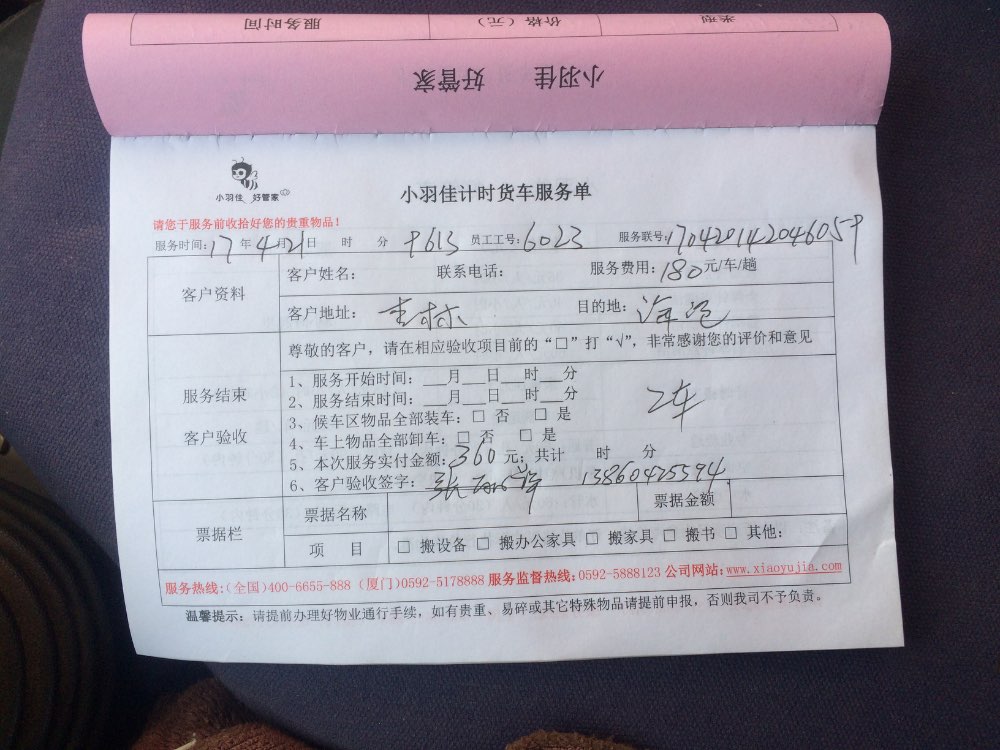 类型 价格（元） 服务时间
小羽佳 好管家
小羽佳 好管家
小羽佳计时货车服务单
请您于服务前收拾好您的贵重物品！
服务时间：17年4月21日 时 分 9613 员工工号：6023 服务联号：
客户资料
客户姓名： 联系电话： 服务费用：180元/车/趟
客户地址： 目的地：海沧
尊敬的客户，请在相应验收项目前的“□”打“√”，非常感谢您的评价和意见
服务结束
客户验收
1、服务开始时间：___月___日___时___分
2、服务结束时间：___月___日___时___分
3、候车区物品全部装车：□ 否 □ 是
2车
4、车上物品全部卸车：□ 否 □ 是
5、本次服务实付金额：360元；共计 时 分
6、客户验收签字：张 13860425594
票据栏
票据名称 票据金额
项 目 □ 搬设备 □ 搬办公家具 □ 搬家具 □ 搬书 □ 其他：
服务热线：(全国)400-6655-888 (厦门)0592-5178888 服务监督热线：0592-5888123 公司网站：www.xiaoyujia.com
温馨提示：请提前办理好物业通行手续，如有贵重、易碎或其它特殊物品请提前申报，否则我司不予负责。